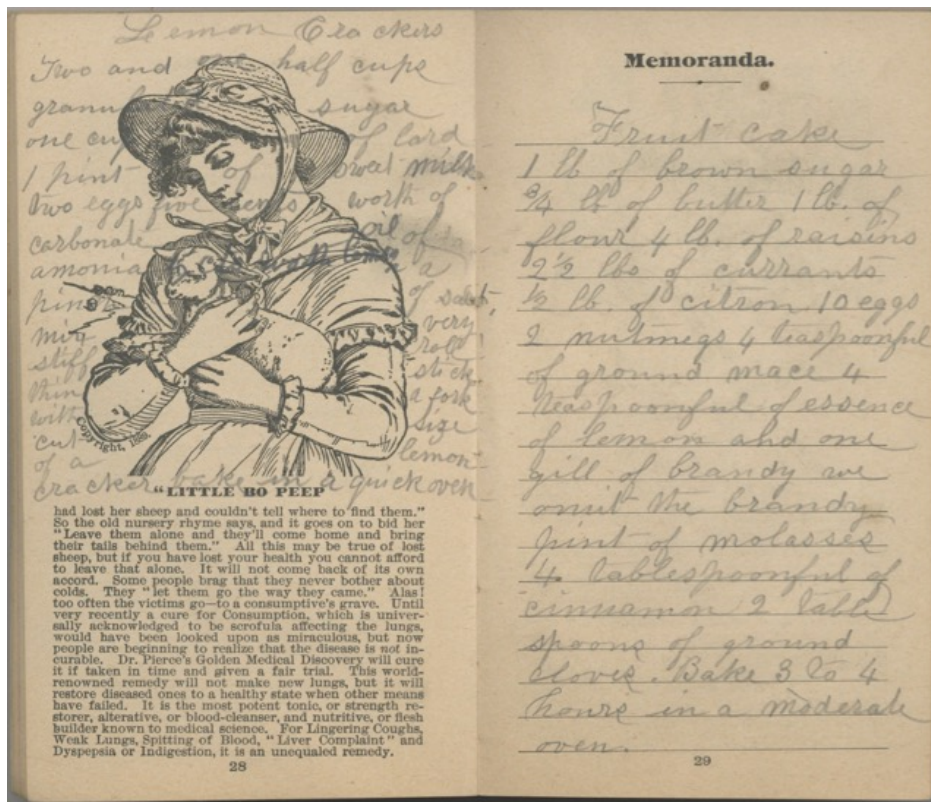 Lemon Crackers
Two and one half cups
granul sugar
one cup of lard
1 pint of sweet milk
two eggs five cents worth of
carbonate oil of
amonia a
pin of salt
mix very
stiff roll
thin stick
with a fork
cut size
of a lemon
cracker bake in a quick oven
Copyright, 1889.
"LITTLE BO PEEP
had lost her sheep and couldn't tell where to find them."
So the old nursery rhyme says, and it goes on to bid her
"Leave them alone and they'll come home and bring
their tails behind them." All this may be true of lost
sheep, but if you have lost your health you cannot afford
to leave that alone. It will not come back of its own
accord. Some people brag that they never bother about
colds. They "let them go the way they came." Alas!
too often the victims go—to a consumptive's grave. Until
very recently a cure for Consumption, which is univer-
sally acknowledged to be scrofula affecting the lungs,
would have been looked upon as miraculous, but now
people are beginning to realize that the disease is not in-
curable. Dr. Pierce's Golden Medical Discovery will cure
it if taken in time and given a fair trial. This world-
renowned remedy will not make new lungs, but it will
restore diseased ones to a healthy state when other means
have failed. It is the most potent tonic, or strength re-
storer, alterative, or blood-cleanser, and nutritive, or flesh
builder known to medical science. For Lingering Coughs,
Weak Lungs, Spitting of Blood, "Liver Complaint" and
Dyspepsia or Indigestion, it is an unequaled remedy.
28
Memoranda.
Fruit cake
1 lb of brown sugar
3/4 lb of butter 1 lb. of
flour 4 lb. of raisins
2 1/2 lbs of currants
1/2 lb. of citron 10 eggs
2 nutmegs 4 teaspoonful
of ground mace 4
teaspoonful of essence
of lemon and one
gill of brandy we
omit the brandy
pint of molasses
4 tablespoonful of
cinnamon 2 table
spoons of ground
cloves. Bake 3 to 4
hours in a moderate
oven.
29